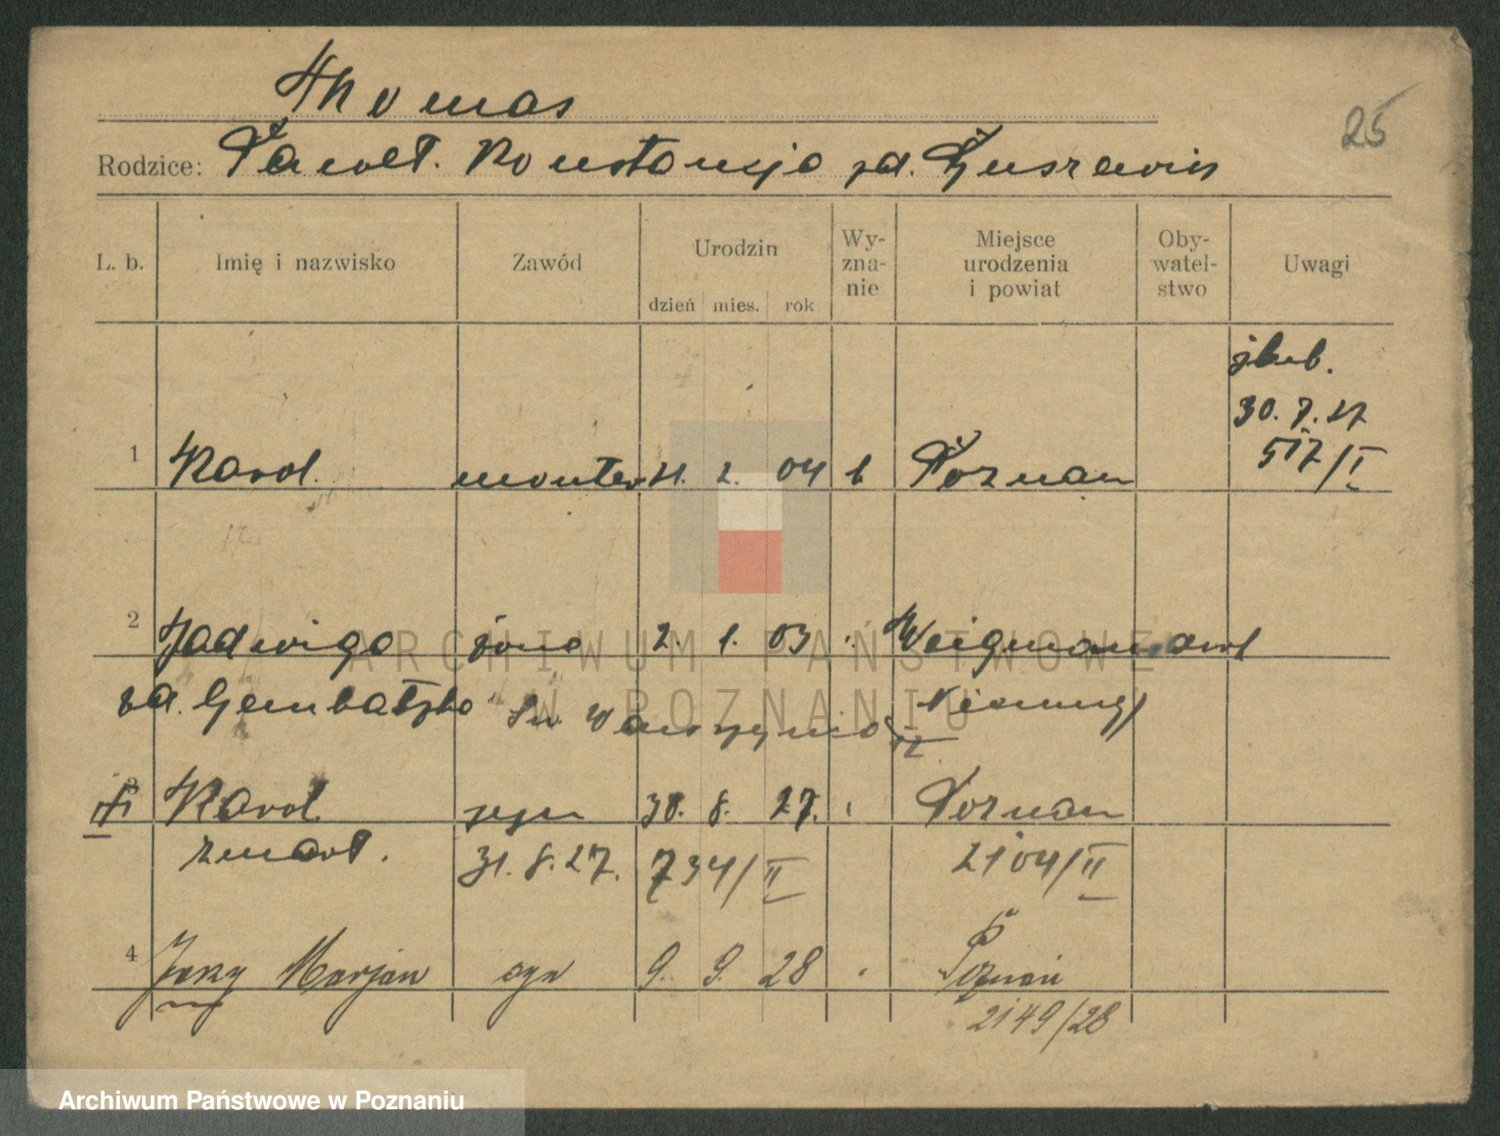 Thomas
25
Rodzice: Paweł. Konstancja zd.
L. b. Imię i nazwisko Zawód Urodzin dzień mies. rok Wy-zna-nie Miejsce urodzenia i powiat Oby-watel-stwo Uwagi
ślub.
30. 7. 27
517/I
1 Karol. monter 2. 04 k Poznan
2 Jadwiga żona 2. 1. 03
zd.
3 Karol syn 30. 8. 27. Poznan
zmarł. 31. 8. 27. 734/II 2104/II
4 Jerzy Marjan syn 9. 9. 28 Poznań
2149/28
ARCHIWUM PAŃSTWOWE
W POZNANIU
Archiwum Państwowe w Poznaniu